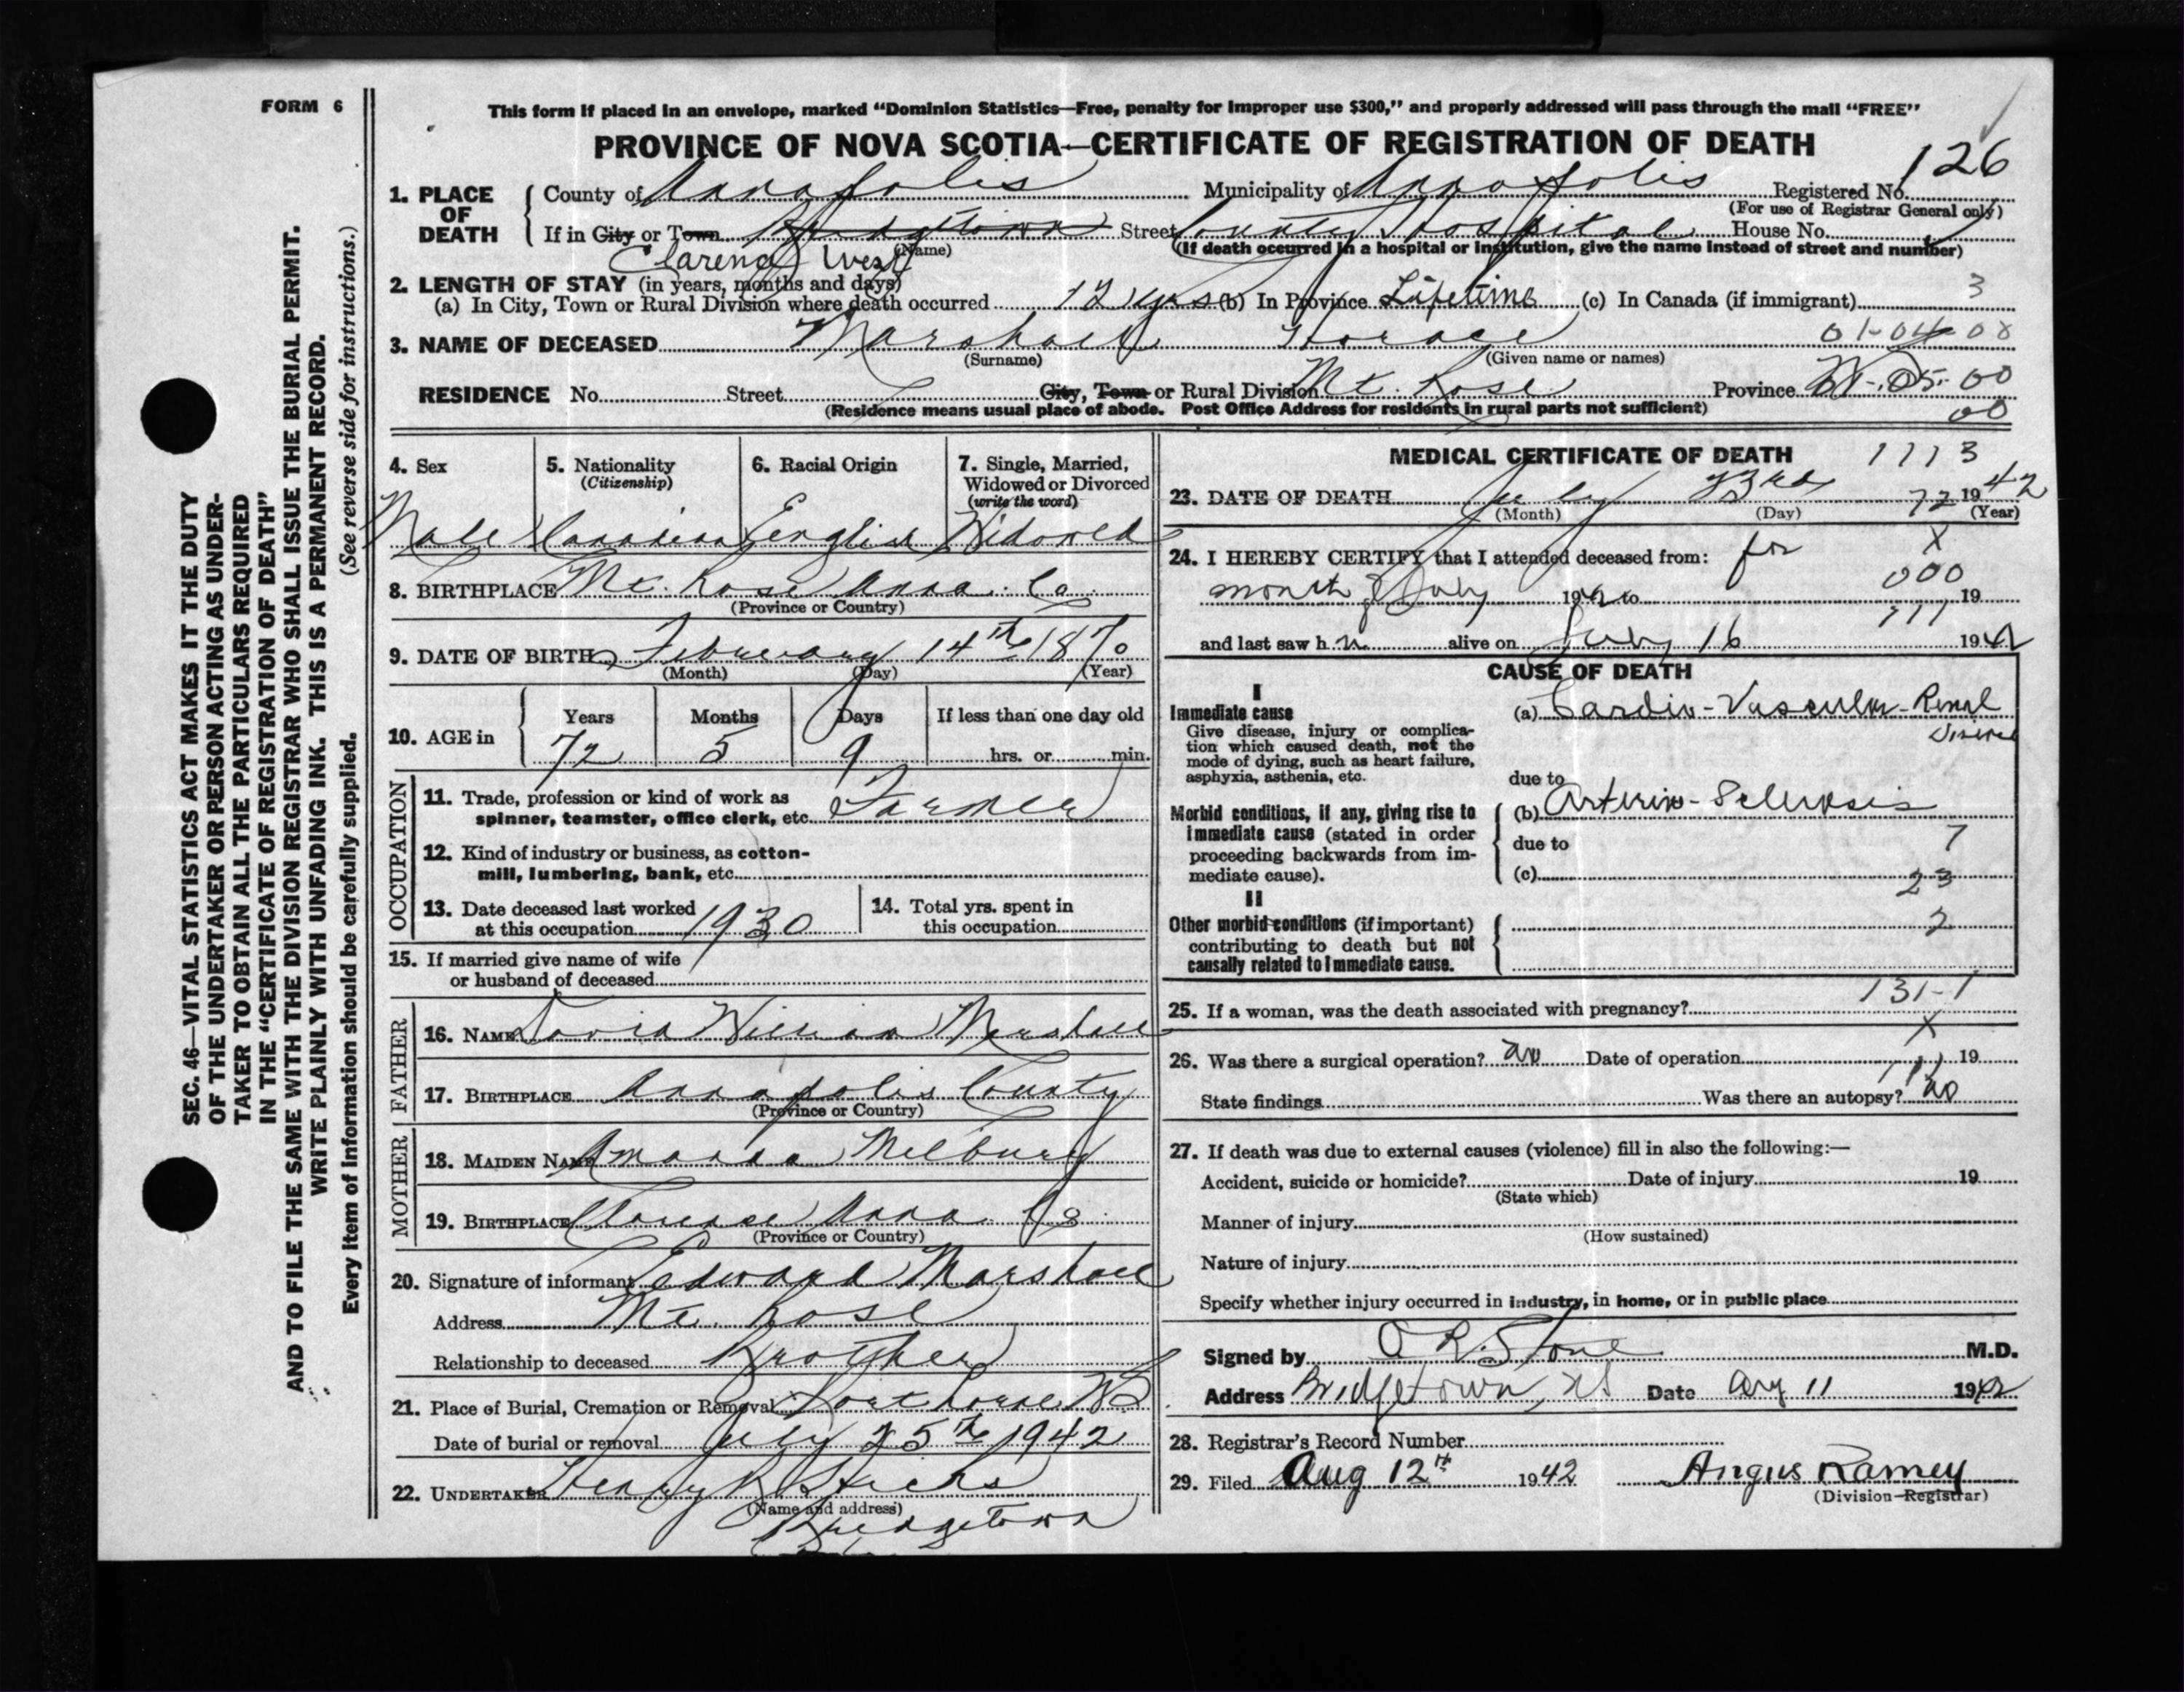 FORM 6
This form if placed in an envelope, marked “Dominion Statistics—Free, penalty for improper use $300,” and properly addressed will pass through the mail “FREE”
PROVINCE OF NOVA SCOTIA—CERTIFICATE OF REGISTRATION OF DEATH
126
1. PLACE OF DEATH
County of Annapolis Municipality of Annapolis Registered No.
(For use of Registrar General only)
If in City or Town Bridgetown Street County Hospital House No.
(Name) (If death occurred in a hospital or institution, give the name instead of street and number)
Clarence West
2. LENGTH OF STAY (in years, months and days)
(a) In City, Town or Rural Division where death occurred 12 yrs (b) In Province Lifetime (c) In Canada (if immigrant) 3
3. NAME OF DECEASED Marshall Horace 01-04-00
(Surname) (Given name or names)
RESIDENCE No. Street City, Town or Rural Division Mt. Rose Province 05-00
(Residence means usual place of abode. Post Office Address for residents in rural parts not sufficient) 00
4. Sex
Male
5. Nationality
(Citizenship)
Canadian
6. Racial Origin
English
7. Single, Married,
Widowed or Divorced
(write the word)
Widowed
8. BIRTHPLACE Mt. Rose Anna. Co.
(Province or Country)
9. DATE OF BIRTH February 14th 1870
(Month) (Day) (Year)
10. AGE in
Years Months Days If less than one day old
72 5 9 hrs. or min.
OCCUPATION
11. Trade, profession or kind of work as
spinner, teamster, office clerk, etc. Farmer
12. Kind of industry or business, as cotton-
mill, lumbering, bank, etc.
13. Date deceased last worked
at this occupation 1930
14. Total yrs. spent in
this occupation
15. If married give name of wife
or husband of deceased
FATHER
16. NAME David William Marshall
17. BIRTHPLACE Annapolis County
(Province or Country)
MOTHER
18. MAIDEN NAME Amanda Milbury
19. BIRTHPLACE Clarence Anna. Co.
(Province or Country)
20. Signature of informant Edward Marshall
Address Mt. Rose
Relationship to deceased Brother
21. Place of Burial, Cremation or Removal Port Lorne NS
Date of burial or removal July 25th 1942
22. UNDERTAKER Henry B Hicks
(Name and address)
Bridgetown
MEDICAL CERTIFICATE OF DEATH 1113
23. DATE OF DEATH July 23rd 1942
(Month) (Day) 72 (Year)
24. I HEREBY CERTIFY that I attended deceased from: for X
month of July 1942 to 19
000
111
and last saw h m alive on July 16 1942
CAUSE OF DEATH
I
Immediate cause
Give disease, injury or complica-
tion which caused death, not the
mode of dying, such as heart failure,
asphyxia, asthenia, etc.
(a) Cardio-Vascular-Renal
Disease
due to
Morbid conditions, if any, giving rise to
immediate cause (stated in order
proceeding backwards from im-
mediate cause).
(b) Arterio-Sclerosis
due to 7
(c) 23
II
Other morbid conditions (if important)
contributing to death but not
causally related to immediate cause.
2
131-1
25. If a woman, was the death associated with pregnancy?
X
26. Was there a surgical operation? no Date of operation 19
111
State findings Was there an autopsy? no
27. If death was due to external causes (violence) fill in also the following:—
Accident, suicide or homicide? Date of injury 19
(State which)
Manner of injury
(How sustained)
Nature of injury
Specify whether injury occurred in industry, in home, or in public place
Signed by A R. Stone M.D.
Address Bridgetown, NS Date Aug 11 1942
28. Registrar's Record Number
29. Filed Aug 12th 1942 Angus Ramey
(Division Registrar)
SEC. 46—VITAL STATISTICS ACT MAKES IT THE DUTY
OF THE UNDERTAKER OR PERSON ACTING AS UNDER-
TAKER TO OBTAIN ALL THE PARTICULARS REQUIRED
IN THE “CERTIFICATE OF REGISTRATION OF DEATH”
AND TO FILE THE SAME WITH THE DIVISION REGISTRAR WHO SHALL ISSUE THE BURIAL PERMIT.
WRITE PLAINLY WITH UNFADING INK. THIS IS A PERMANENT RECORD.
Every item of information should be carefully supplied. (See reverse side for instructions.)